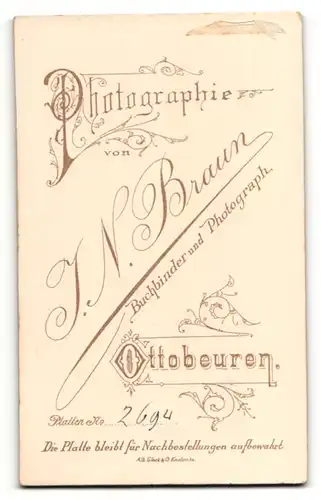 Photographie
von
J. N. Braun
Buchbinder und Photograph.
Ottobeuren.
Platten No. 2694
Die Platte bleibt für Nachbestellungen aufbewahrt.